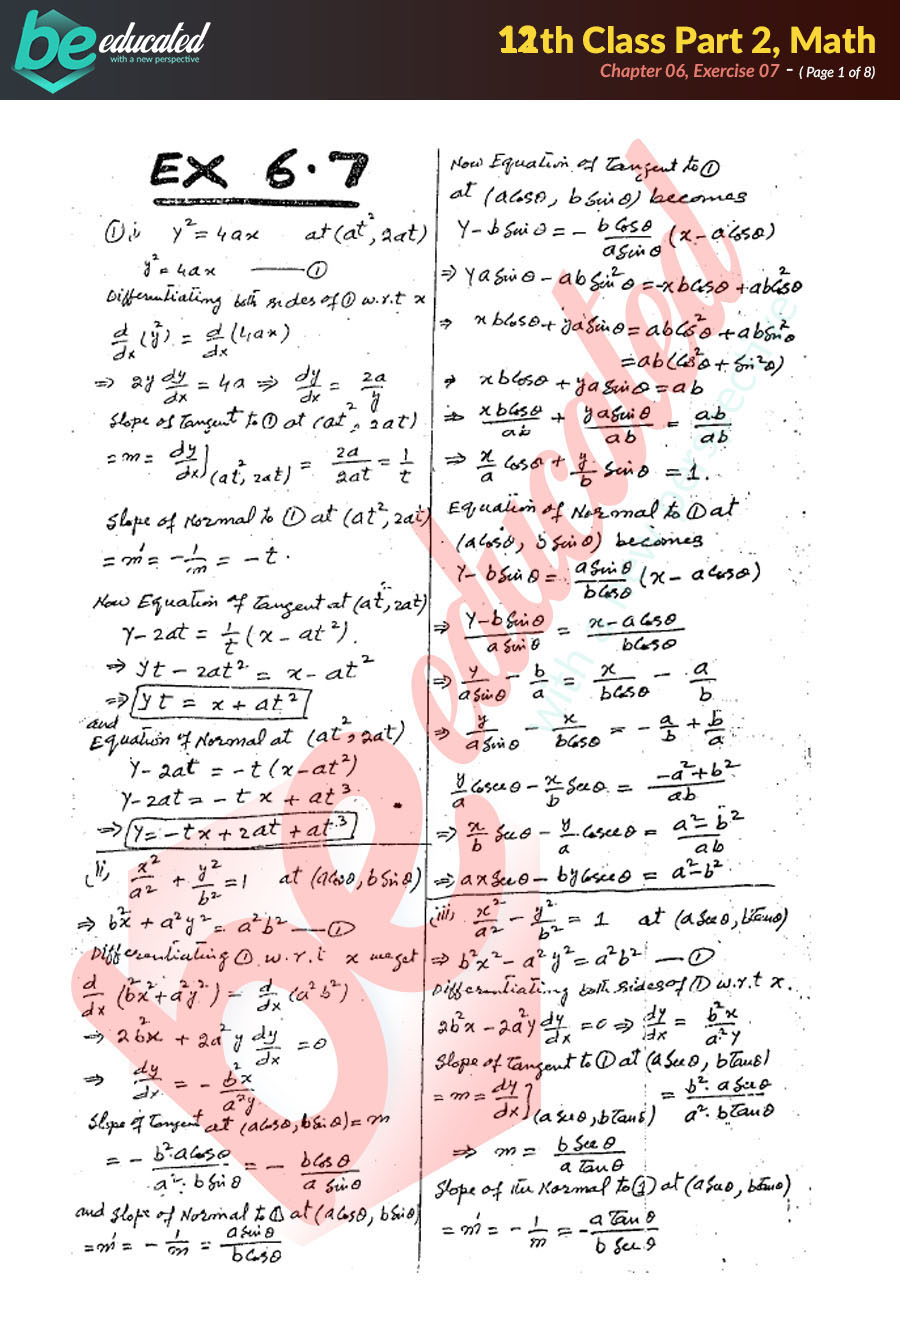 be educated
with a new perspective
12th Class Part 2, Math
Chapter 06, Exercise 07 - ( Page 1 of 8)
EX 6.7
① i) y² = 4ax at (at², 2at)
y² = 4ax —— ①
Differentiating both sides of ① w.r.t x
d/dx (y²) = d/dx (4ax)
⇒ 2y dy/dx = 4a ⇒ dy/dx = 2a/y
Slope of Tangent to ① at (at², 2at)
= m = dy/dx](at², 2at) = 2a/2at = 1/t
Slope of Normal to ① at (at², 2at)
= m' = -1/m = -t.
Now Equation of Tangent at (at², 2at)
y - 2at = 1/t (x - at²).
⇒ yt - 2at² = x - at²
⇒ yt = x + at²
and
Equation of Normal at (at², 2at)
y - 2at = -t (x - at²)
y - 2at = -tx + at³
⇒ y = -tx + 2at + at³
(ii) x²/a² + y²/b² = 1 at (a Cosθ, b Sinθ)
⇒ b²x² + a²y² = a²b² —— ①
Differentiating ① w.r.t x we get
d/dx (b²x² + a²y²) = d/dx (a²b²)
⇒ 2b²x + 2a²y dy/dx = 0
⇒ dy/dx = - b²x/a²y
Slope of Tangent at (a Cosθ, b Sinθ) = m
= - b²aCosθ/a².b Sinθ = - b Cosθ/a Sinθ
and Slope of Normal to ① at (a Cosθ, b Sinθ)
= m' = -1/m = a Sinθ/b Cosθ
Now Equation of Tangent to ①
at (a Cosθ, b Sinθ) becomes
y - b Sinθ = - b Cosθ/a Sinθ (x - a Cosθ)
⇒ ya Sinθ - ab Sin²θ = -xb Cosθ + ab Cos²θ
⇒ xb Cosθ + ya Sinθ = ab Cos²θ + ab Sin²θ
= ab (Cos²θ + Sin²θ)
⇒ xb Cosθ + ya Sinθ = ab
⇒ xb Cosθ/ab + ya Sinθ/ab = ab/ab
⇒ x/a Cosθ + y/b Sinθ = 1.
Equation of Normal to ① at
(a Cosθ, b Sinθ) becomes
y - b Sinθ = a Sinθ/b Cosθ (x - a Cosθ)
⇒ y - b Sinθ/a Sinθ = x - a Cosθ/b Cosθ
⇒ y/a Sinθ - b/a = x/b Cosθ - a/b
⇒ y/a Sinθ - x/b Cosθ = - a/b + b/a
y/a Cosecθ - x/b Secθ = -a² + b²/ab
⇒ x/b Secθ - y/a Cosecθ = a² - b²/ab
⇒ ax Secθ - by Cosecθ = a² - b².
(iii) x²/a² - y²/b² = 1 at (a Secθ, b Tanθ)
⇒ b²x² - a²y² = a²b² —— ①
Differentiating both sides of ① w.r.t x.
2b²x - 2a²y dy/dx = 0 ⇒ dy/dx = b²x/a²y
Slope of Tangent to ① at (a Secθ, b Tanθ)
= m = dy/dx](a Secθ, b Tanθ) = b².a Secθ/a².b Tanθ
⇒ m = b Secθ/a Tanθ
Slope of the Normal to ① at (a Secθ, b Tanθ)
= m' = -1/m = - a Tanθ/b Secθ
be educated
with a new perspective